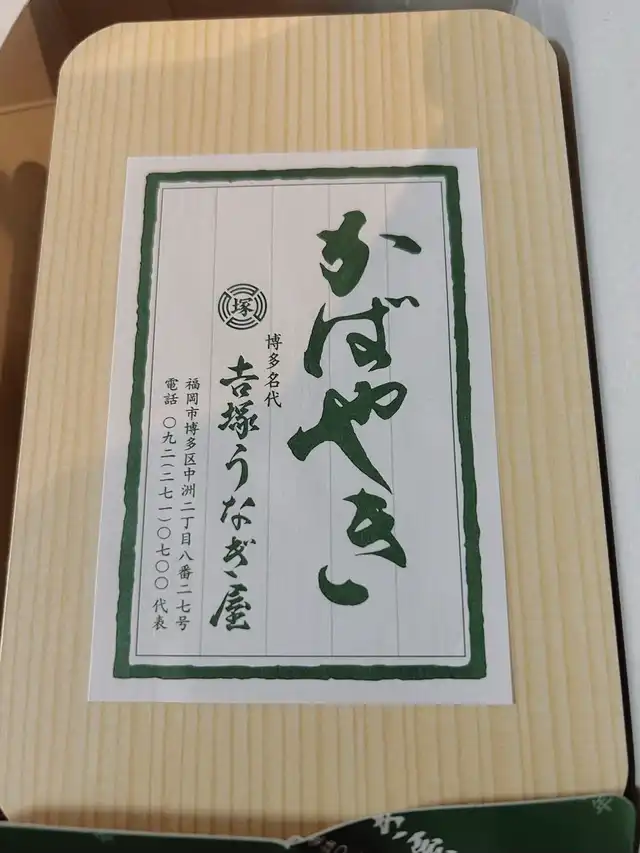 かばやき
博多名代
塚
吉塚うなぎ屋
福岡市博多区中洲二丁目八番二七号
電話 〇九二(二七一)〇七〇〇 代表